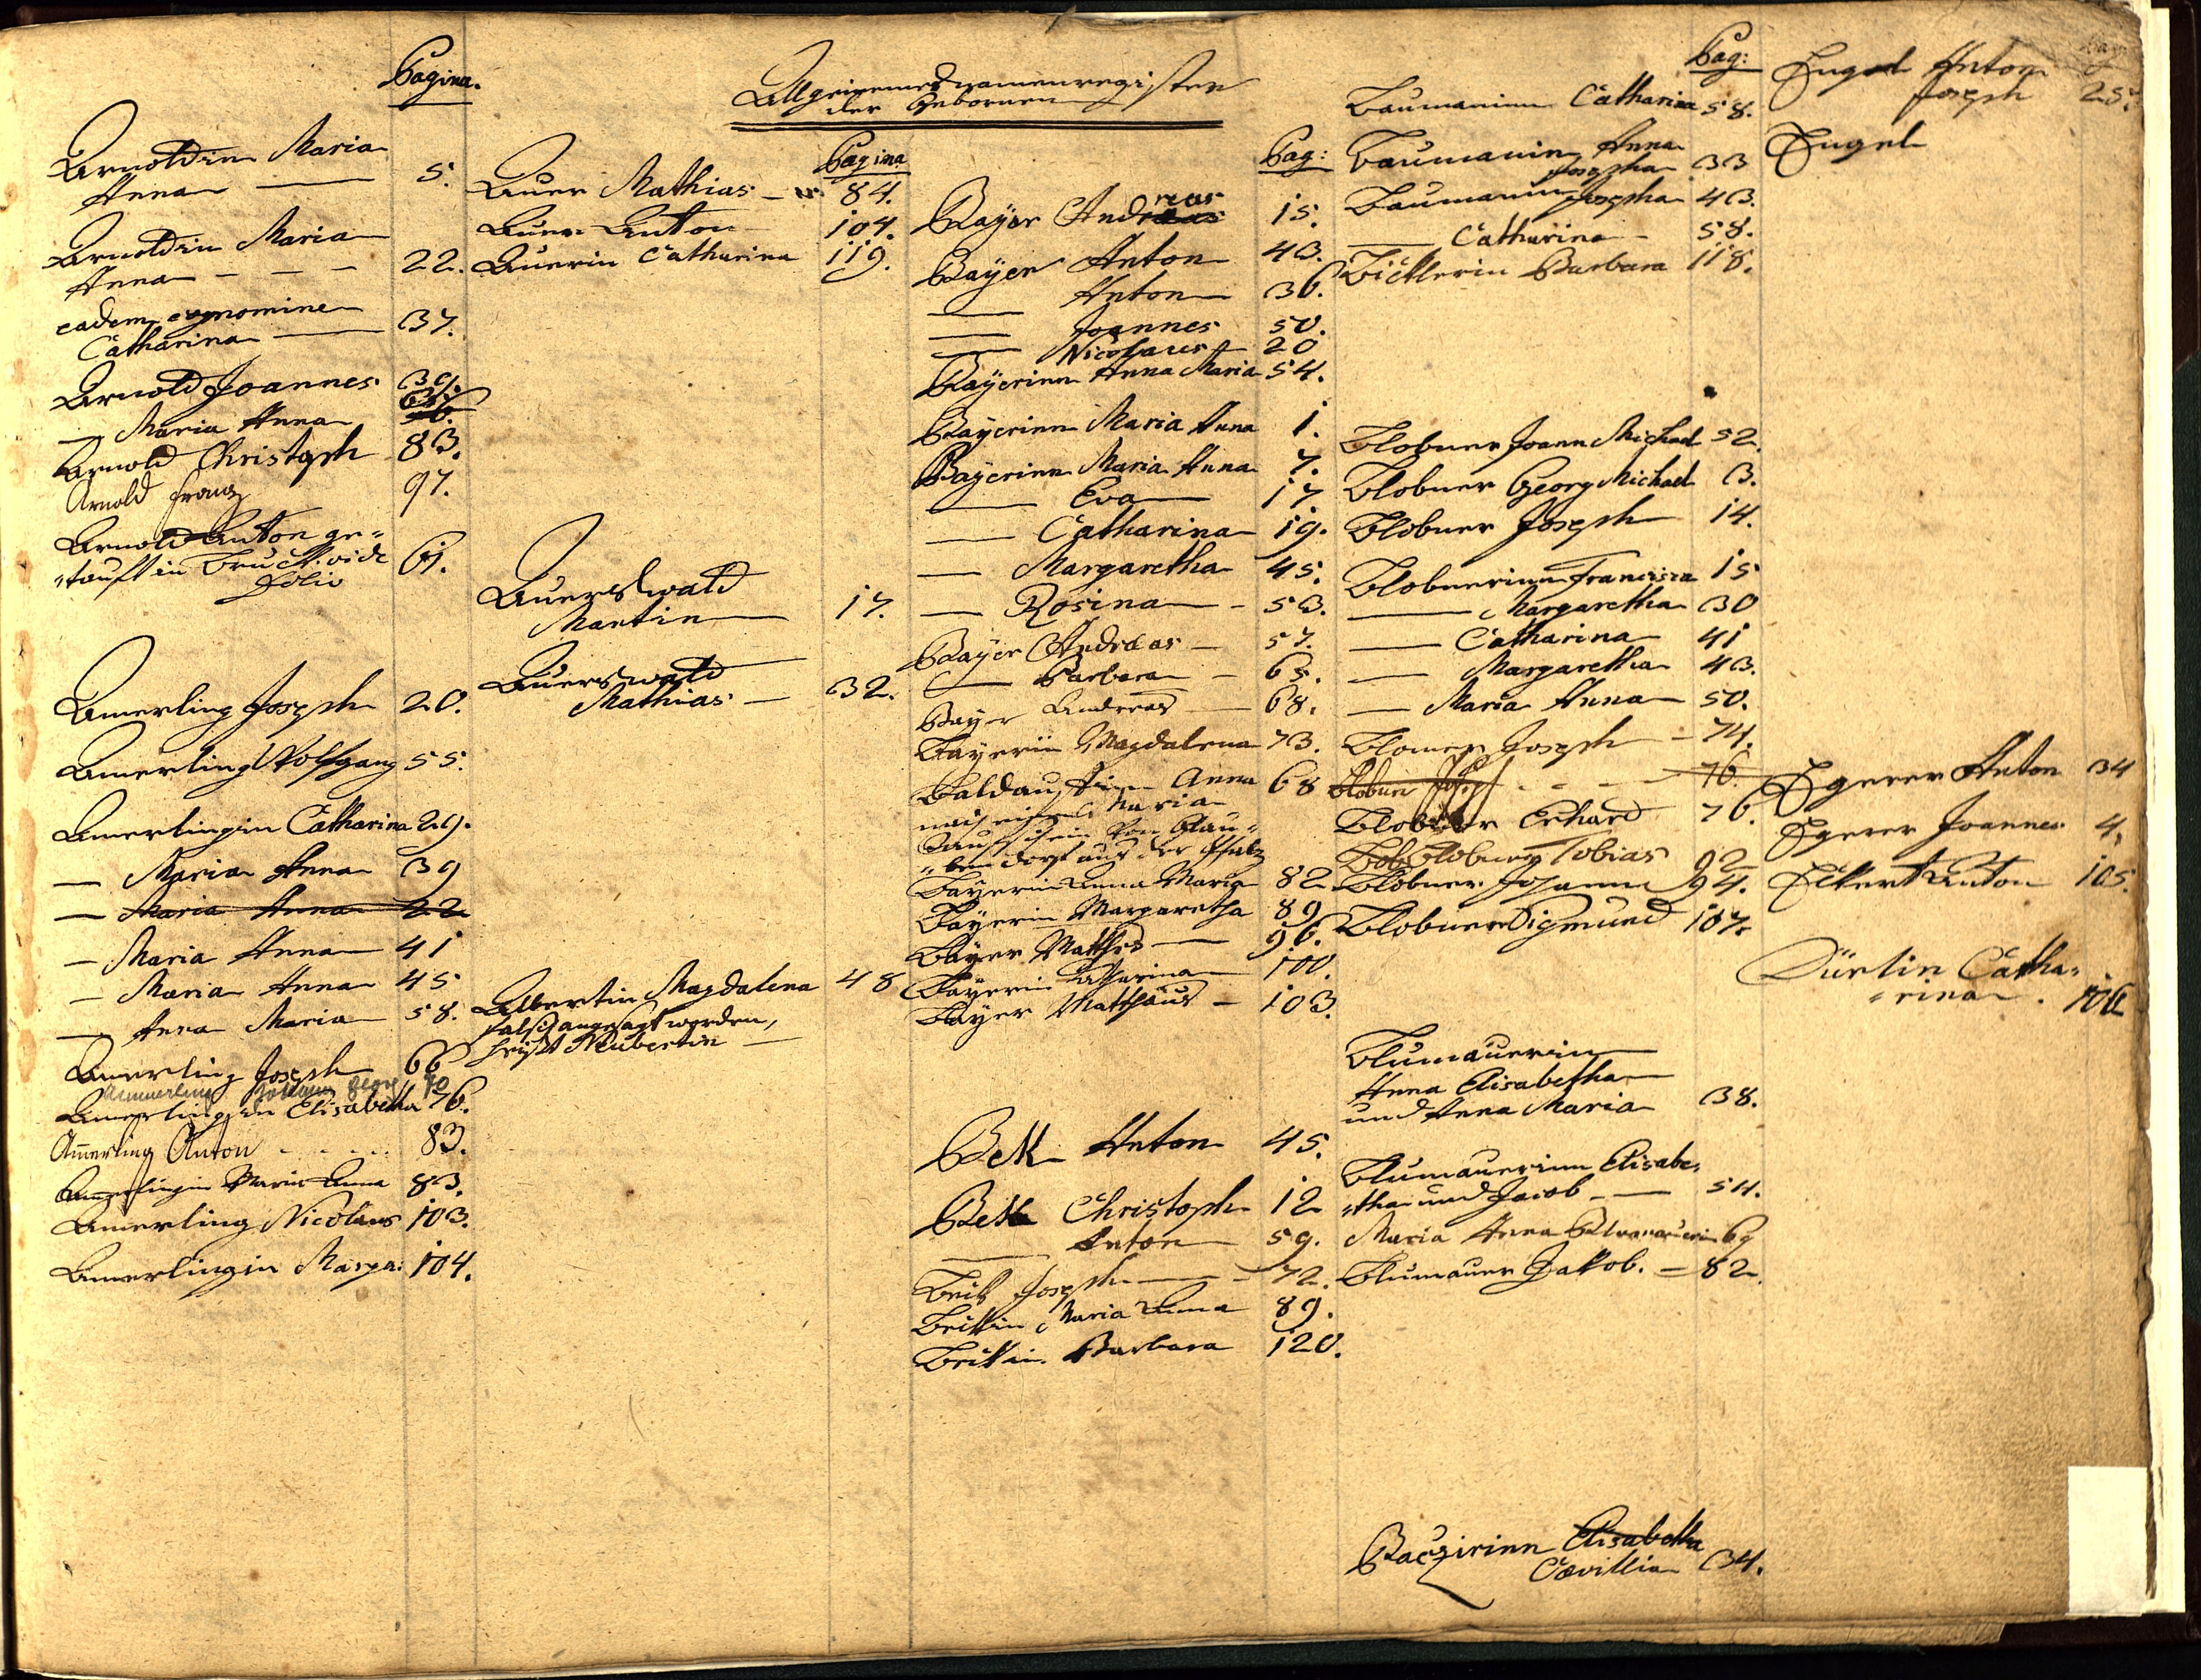 Pagina.
Arnoldin Maria
Anna — 5.
Arnoldin Maria
Anna - - - 22.
eadem cognomine
Catharina — 37.
Arnold Joannes 39.
— Maria Anna
Arnold Christoph 83.
Arnold Franz 97.
Arnold Anton ge-
tauft in Bruck vide 61.
Folio
Amerling Joseph 20.
Amerling Wolfgang 55.
Amerlingin Catharina 29.
— Maria Anna 39
— Maria Anna 22
— Maria Anna 41
— Maria Anna 45
— Anna Maria 58.
Amerling Joseph 66
Ammerling Johann Georg 70
Amerlingin Elisabetha 76.
Am̄erling Anton - - - - 83.
Amerlingin Maria Anna 83.
Amerling Nicolaus 103.
Amerlingin Marga: 104.
Allgemeines Namenregister
der Gebornen
Pagina
Auer Mathias — 84.
Auer Anton 104.
Auerin Catharina 119.
Auerswald
Martin — 17.
Auerswald
Mathias — 32.
Albertin Magdalena 48
falsch angesagt worden,
heißt Neubertin —
Pag:
Bayer Andreas 15.
Bayer Anton 43.
— Anton 36.
— Joannes 50.
— Nicolaus 20
Bayerinn Anna Maria 54.
Bayerinn Maria Anna 1.
Bayerinn Maria Anna 7.
— Eva 17
— Catharina 19.
— Margaretha 45.
— Rosina — 53.
Bayer Andreas — 57.
— Barbara — 65.
Bayer Andreas — 68.
Bayerin Magdalena 73.
Anna 68
Maria
von
aus der Pfalz
Bayerin Anna Maria 82
Bayerin Margaretha 89
Bayer Mathes — 96.
Bayerin Catharina 100.
Bayer Matthäus — 103.
Bek Anton 45.
Bek Christoph 12
— Anton 59.
Beik Joseph — 72.
Beikin Maria Anna 89.
Beikin Barbara 120.
Pag:
Baumaninn Catharina 58.
Baumanin Anna
Josepha 33
Baumanin Josepha 43.
— Catharina — 58.
Barbara 118.
Blobner Joann Michael 52.
Blobner Georg Michael 3.
Blobner Joseph 14.
Blobnerinn Francisca 15
— Margaretha 30
— Catharina 41
— Margaretha 43.
— Maria Anna — 50.
Blomer Joseph — 74.
Blobner Josef - - - 76.
Blobner Erhard 76.
Blobner Tobias 92
Blobner Johann 94.
Blobner Sigmund 107.
Blumauerin
Anna Elisabetha
und Anna Maria 38.
Blumauerinn Elisabe-
tha und Jacob — 54.
Maria Anna Blumauerin 69
Blumauer Jakob. — 82.
Elisabetha
34.
Engel Anton
Joseph 25.
Engel
Egerer Anton 34
Egerer Joannes 4.
Ekert Anton 105.
Dürlin Catha-
rina. 106